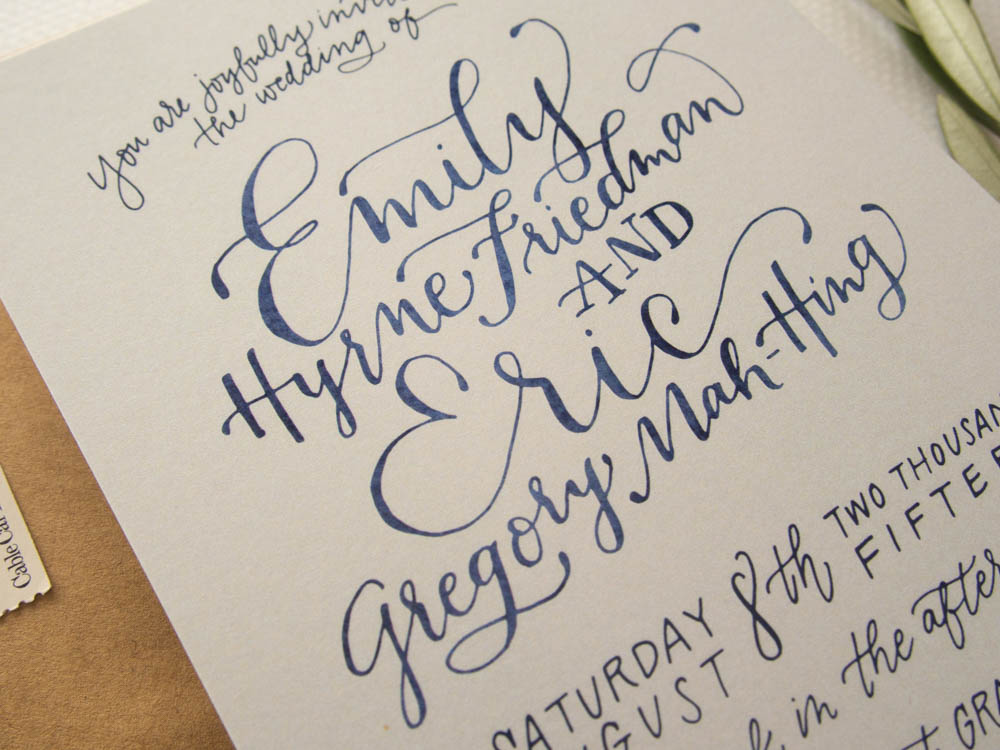 you are joyfully invi
the wedding of
Emily
Hyrne Friedman
AND
Eric
Gregory Mah-Hing
SATURDAY 8th TWO THOUSAN
GUST FIFTE
in the after
GRA
Cable Car